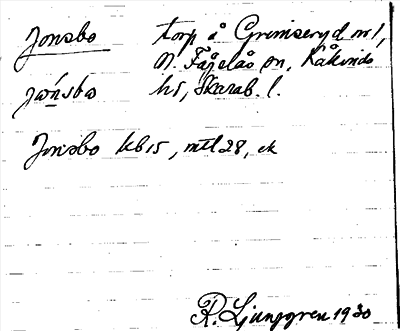 Jonsbo torp å Grimseryd nr 1,
N. Fågelås sn, Kåkinds
jων́sbω hs, Skarab. l.
Jonsbo kb 15, mtl 28, ek
R. Ljunggren 1930